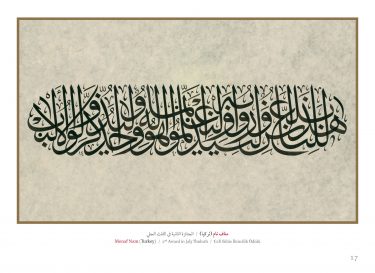 هذا بلاغ للناس ولينذروا به وليعلموا أنما هو إله واحد وليذكر أولوا الألباب
مناف نام (تركيا) / الجائزة الثانية في الثلث الجلي
Menaf Nam (Turkey) / 2nd Award in Jaly Thuluth / Celî Sülüs İkincilik Ödülü
17